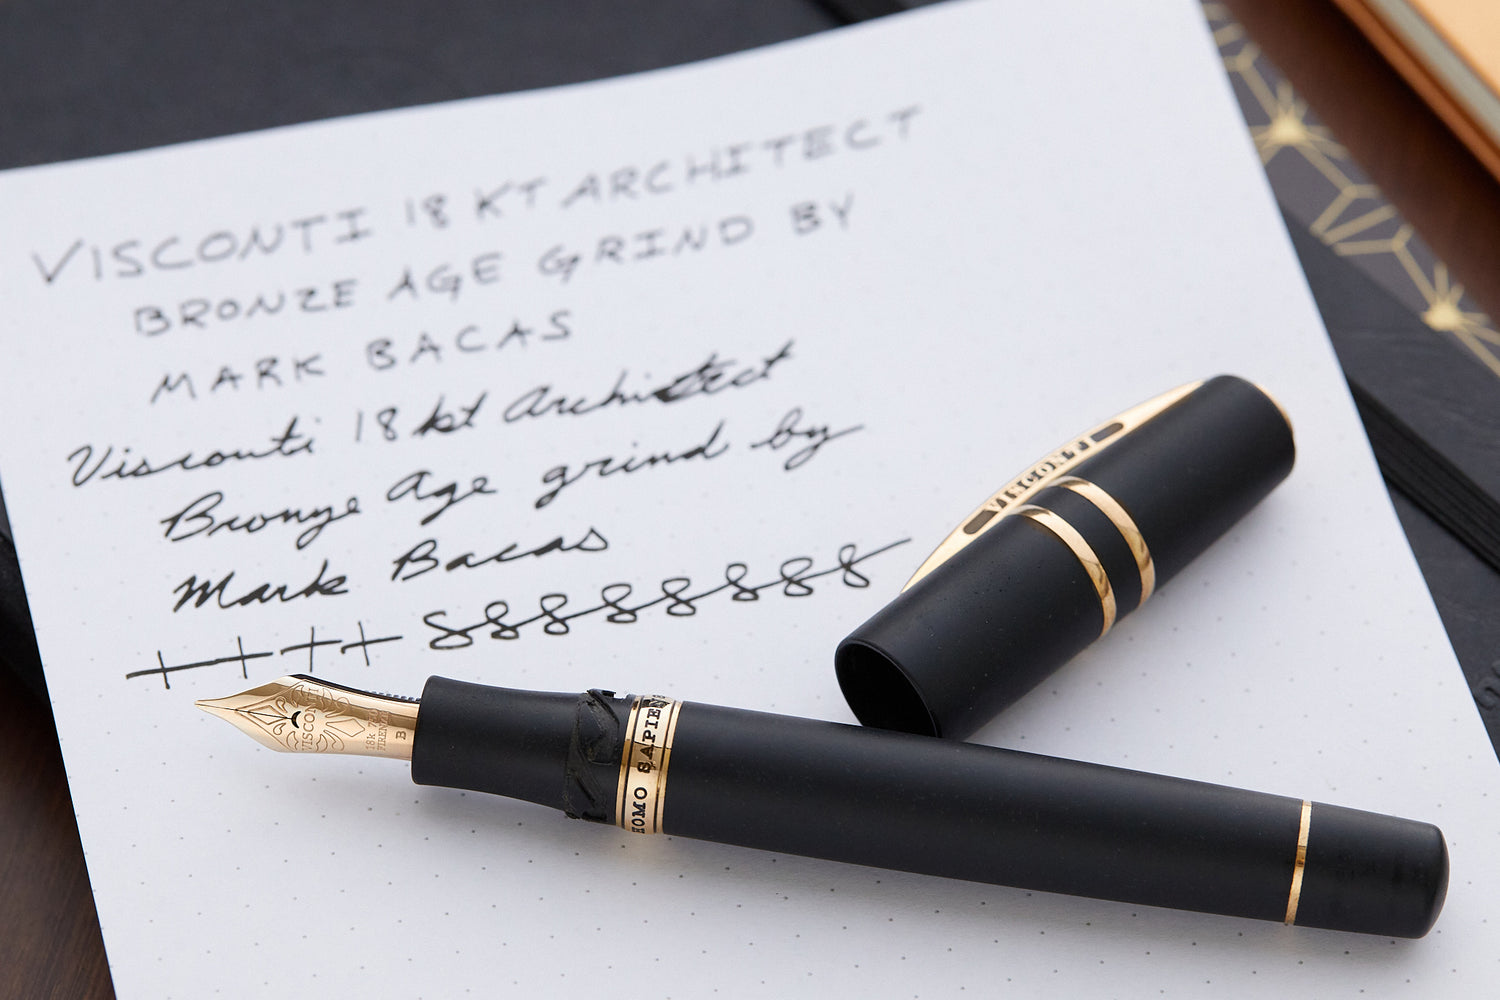 VISCONTI 18 KT ARCHITECT
BRONZE AGE GRIND BY
MARK BACAS
Visconti 18 kt Architect
Bronze Age grind by
Mark Bacas
++++ 88888888
VISCONTI
VISCONTI
18k
FIRENZE
B
HOMO SAPIENS